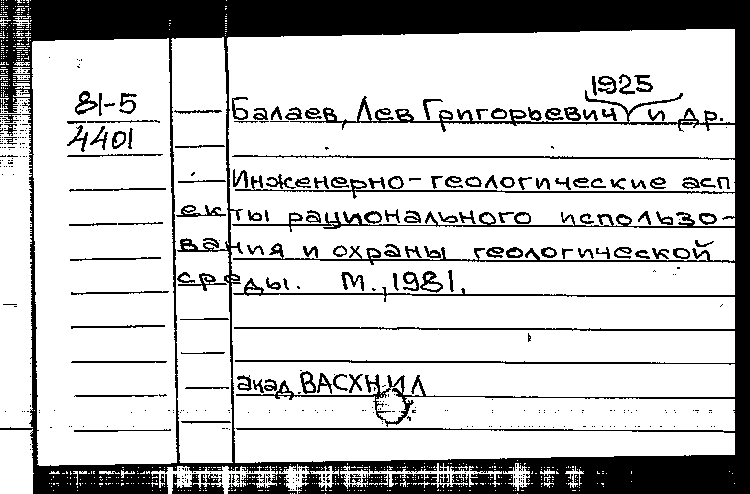 1925
81-5 Балаев, Лев Григорьевич и др.
4401
Инженерно-геологические асп
екты рационального использо-
вания и охраны геологической
среды. М., 1981.
акад. ВАСХНИЛ